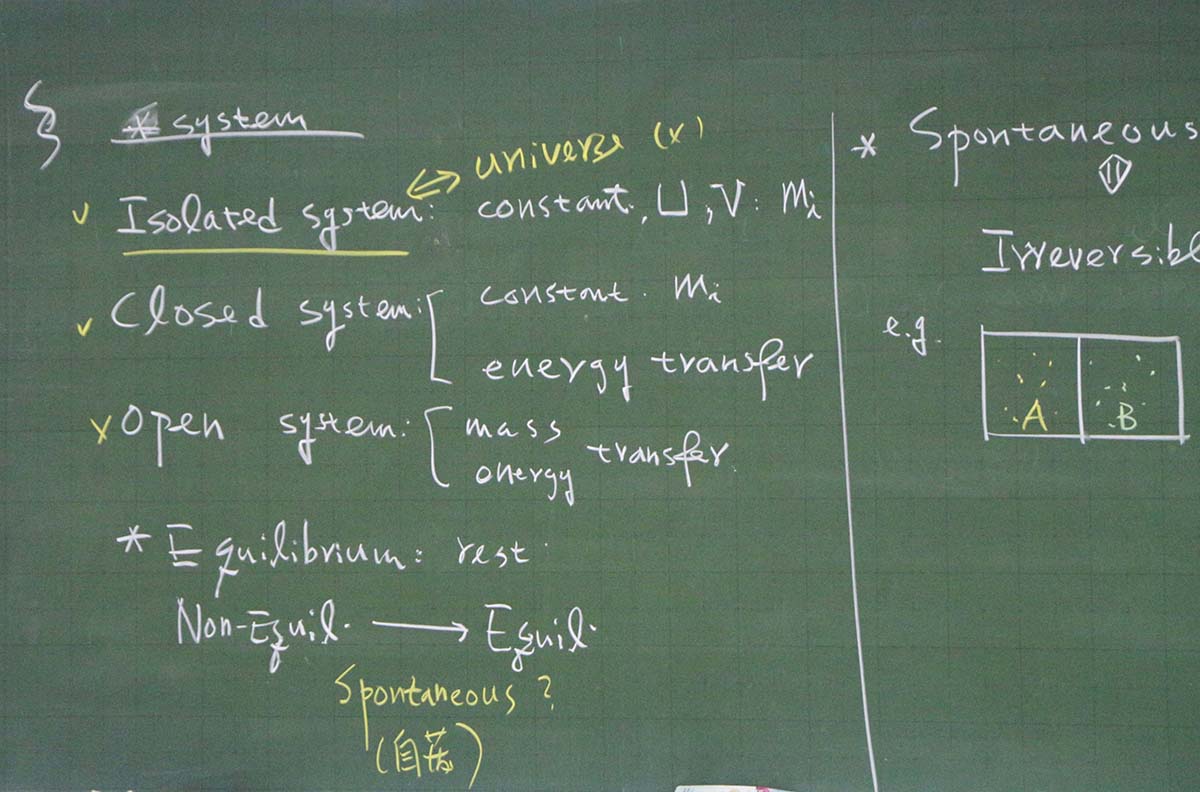 * system
universe (x)
✓ Isolated system: constant. U, V. mi
✓ Closed system: constant. mi
energy transfer
x Open system: mass
energy transfer.
* Equilibrium: rest.
Non-Equil. → Equil.
Spontaneous?
(自發)
* Spontaneous
Irreversibl
e.g.
A B